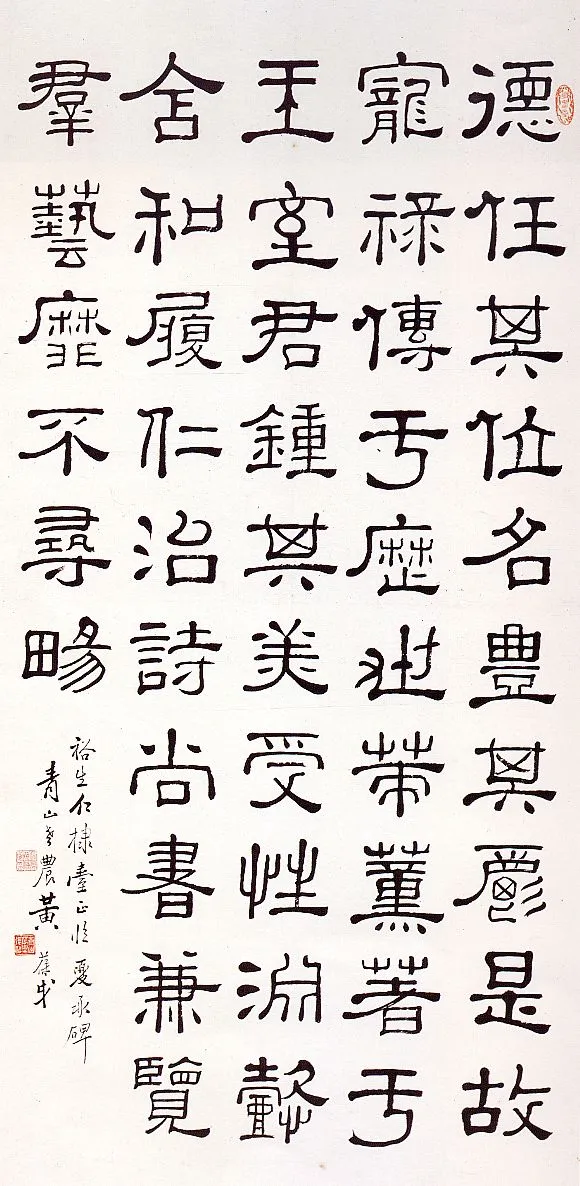 德任其位名豐其爵是故
寵祿傳于歷世策薰著于
王室君鍾其美受性淵懿
含和履仁治詩尚書兼覽
羣藝靡不尋畼
裕生仁棣臺正臨夏承碑
青山老農黃葆戉